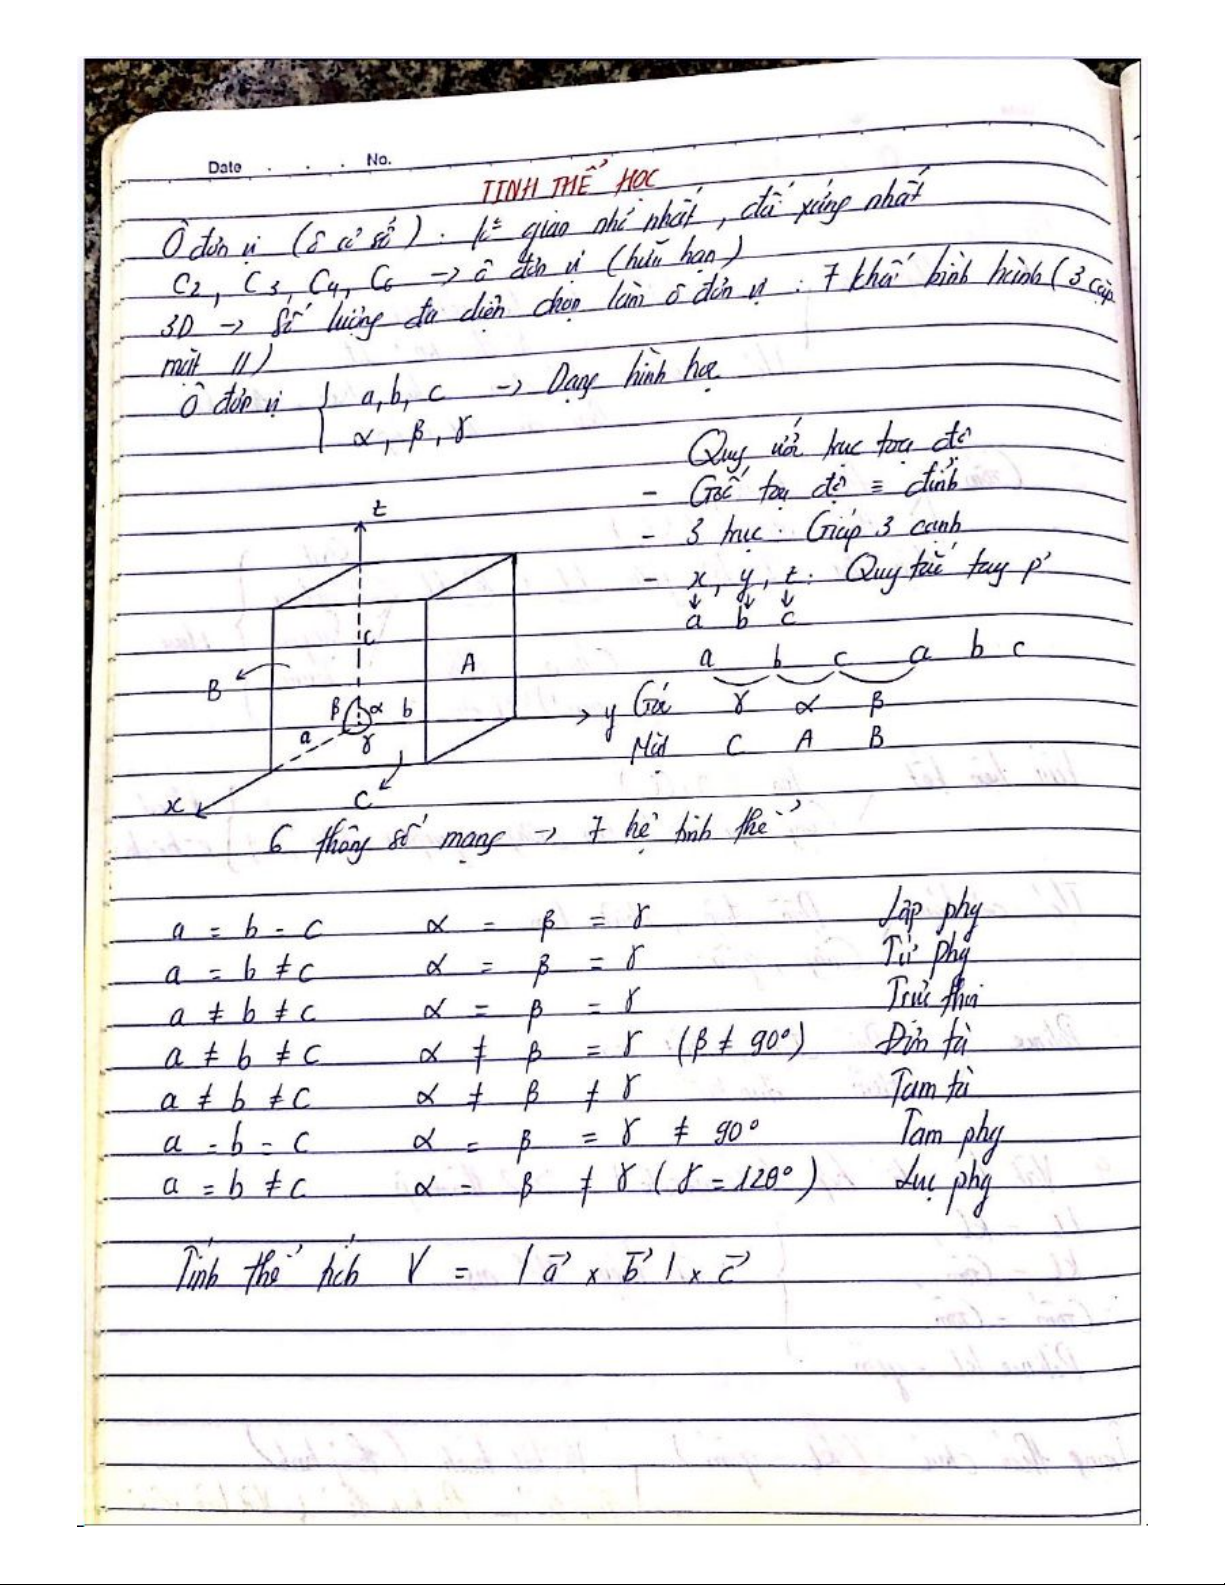 Date . . . No.
TINH THỂ HỌC
Ô đơn vị (ô cơ sở) : k= gian nhỏ nhất, đối xứng nhất
C2, C3, C4, C6 → ô đơn vị (hữu hạn)
3D → Số lượng đa diện chọn làm ô đơn vị : 7 khối bình hành (3 cặp
mặt //)
Ô đơn vị { a, b, c → Dạng hình học
α, β, γ
Quy ước trục toạ độ
- Gốc toạ độ ≡ đỉnh
- 3 trục : Giáp 3 cạnh
- x, y, z : Quy tắc tay p'
↓ ↓ ↓
a b c
z
c
A
B
β α b
a γ
y
x
C
a b c a b c
Góc γ α β
Mặt C A B
6 thông số mạng → 7 hệ tinh thể
a = b = c α = β = γ Lập phg
a = b ≠ c α = β = γ Tứ phg
a ≠ b ≠ c α = β = γ Trực thoi
a ≠ b ≠ c α ≠ β = γ (β ≠ 90°) Đơn tà
a ≠ b ≠ c α ≠ β ≠ γ Tam tà
a = b = c α = β = γ ≠ 90° Tam phg
a = b ≠ c α = β ≠ γ (γ = 120°) Lục phg
Tính thể tích V = |a⃗ x b⃗| x c⃗